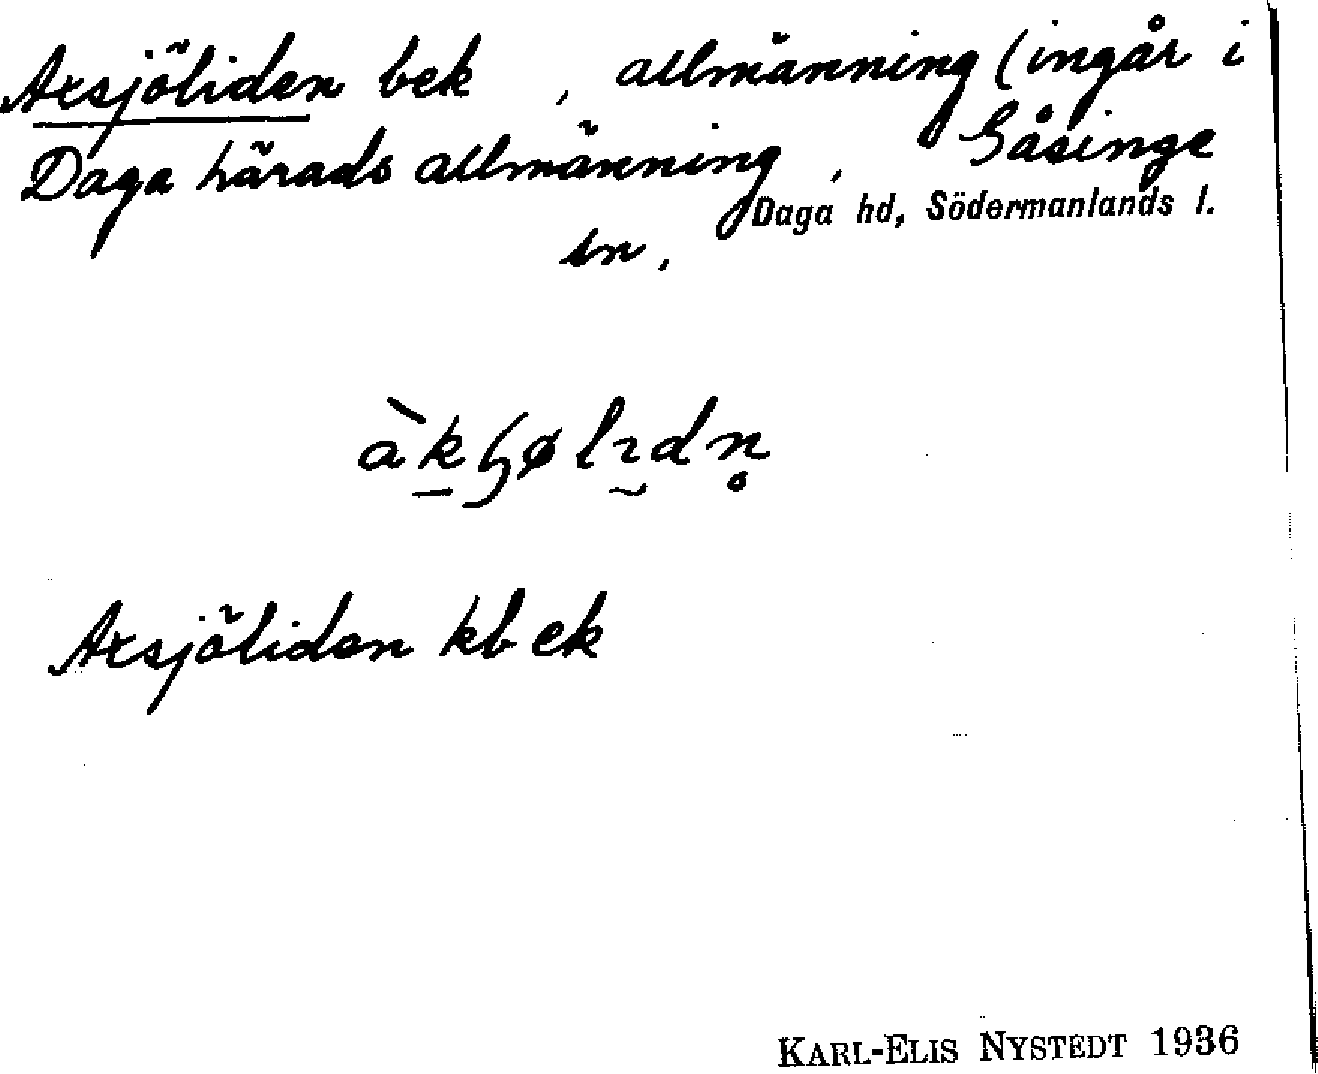 Axsjöliden bek , allmänning (ingår i
Daga härads allmänning , Gåsinge
Daga hd, Södermanlands l.
sn,
Axsjöliden kb ek
KARL-ELIS NYSTEDT 1936